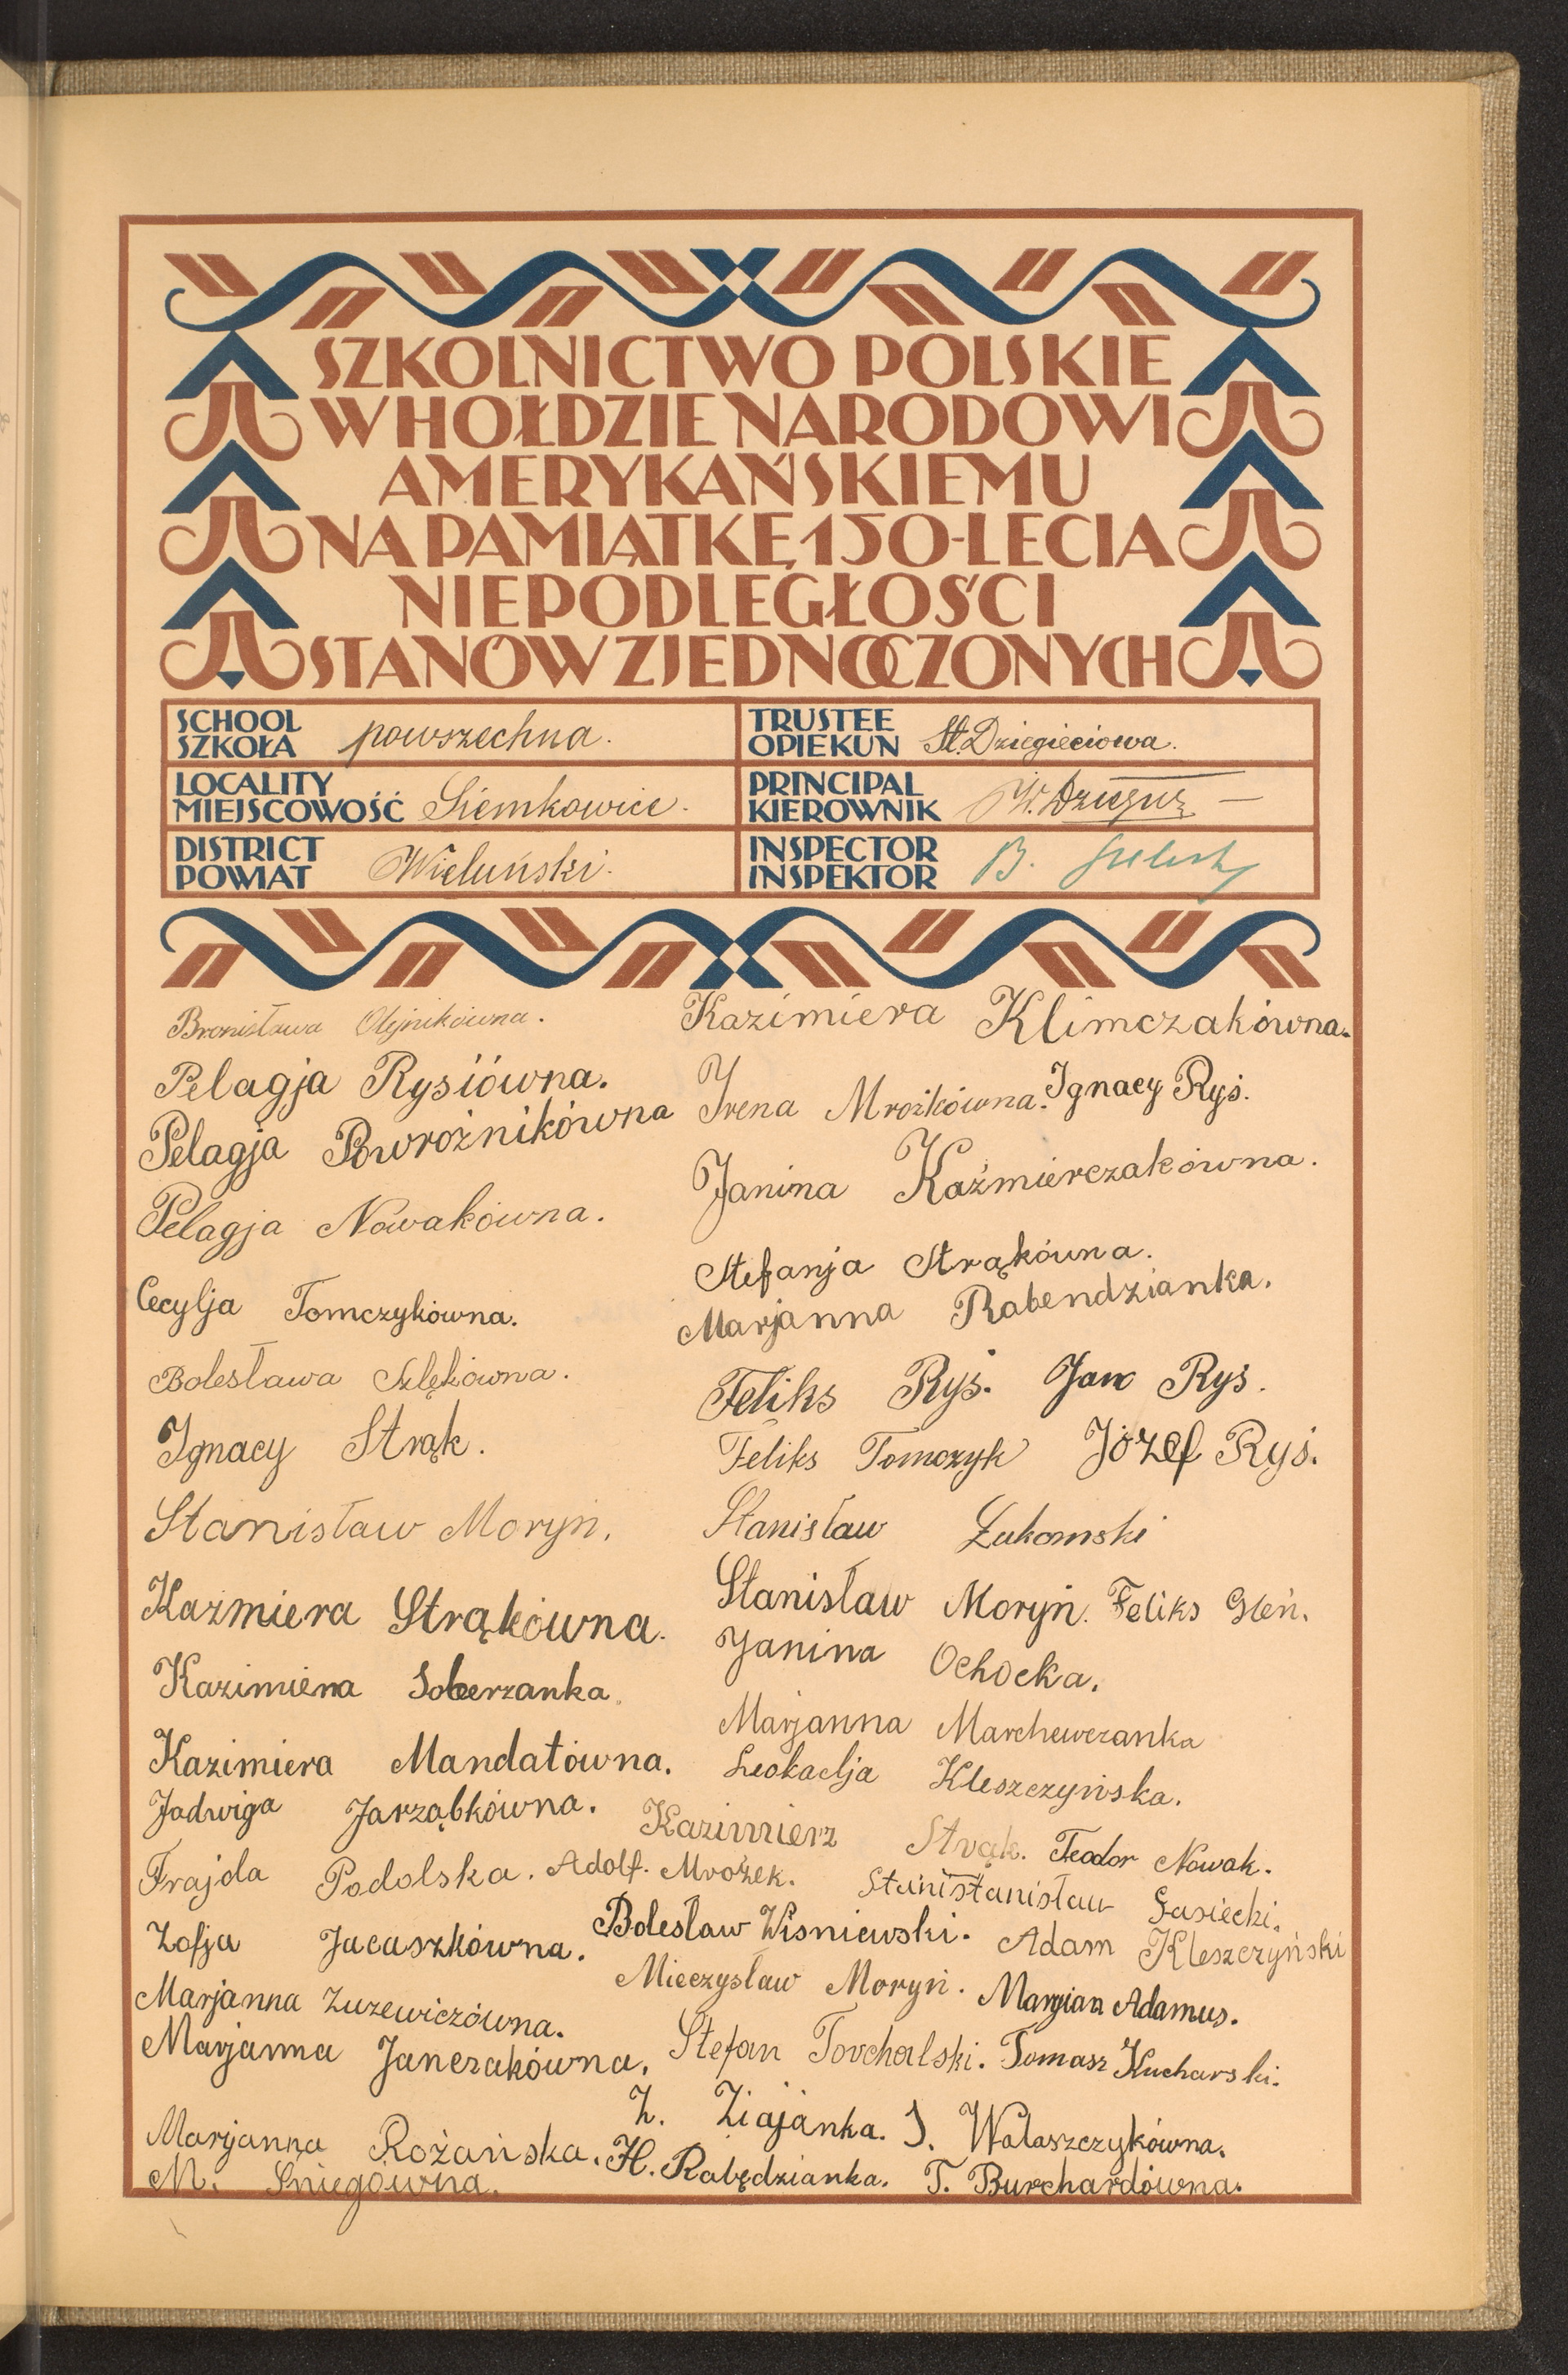 SZKOLNICTWO POLSKIE
W HOŁDZIE NARODOWI
AMERYKAŃSKIEMU
NA PAMIĄTKĘ 150-LECIA
NIEPODLEGŁOŚCI
STANÓW ZJEDNOCZONYCH
SCHOOL
SZKOŁA powszechna.
TRUSTEE
OPIEKUN St. Dziegieciowa.
LOCALITY
MIEJSCOWOŚĆ Siemkowice.
PRINCIPAL
KIEROWNIK W.
DISTRICT
POWIAT Wieluński.
INSPECTOR
INSPEKTOR B.
Bronisława Olejnikówna.
Pelagja Rysiówna.
Pelagja Powroźnikówna
Pelagja Nowakówna.
Cecylja Tomczykówna.
Bolesława Szlękówna.
Ignacy Strąk.
Stanisław Moryń.
Kazmiera Strąkówna.
Kazimiera Soberzanka.
Kazimiera Mandatówna.
Jadwiga Jarząbkówna.
Frajda Podolska. Adolf. Mrożek.
Zofja Jacaszkówna.
Marjanna Zuzewiczówna.
Marjanna Janczakówna.
Marjanna Rożańska.
M. Śniegówna.
Kazimiera Klimczakówna.
Irena Mrożkówna. Ignacy Ryś.
Janina Kaźmierczakówna.
Stefanja Strąkówna.
Marjanna Rabendzianka.
Feliks Ryś. Jan Ryś.
Feliks Tomczyk Józef Ryś.
Stanisław Łukomski
Stanisław Moryń. Feliks Gleń.
Janina Ochocka.
Marjanna Marchewczanka
Leokadja Kleszczyńska.
Kazimierz Strąk. Teodor Nowak.
Stanistanisław Gasiecki.
Bolesław Wisniewski. Adam Kleszczyński
Mieczysław Moryń. Marjan Adamus.
Stefan Torchalski. Tomasz Kucharski.
Z. Ziajanka. J. Walaszczykówna.
H. Rabędzianka. T. Burchardówna.